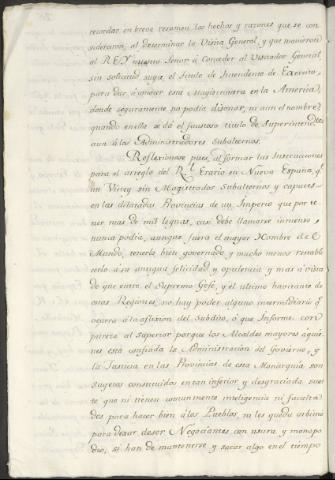 recordar en breve resumen los hechos y razones que se con
sideraron al determinar la Visita General, y que movieron
el REY nuestro Señor à Conceder al Visitador General
sin solicitud suya, el titulo de Intendente de Exercito,
para dàr à conocer esta Magistratura en la America,
donde seguramente no podia disonar, ni aun el nombre,
quando en ella se dà el fastoso titulo de Superintendentes
aun à los Administradores subalternos.
Reflexionose pues, al formar las Instrucciones
para el arreglo del Rl. Erario en Nueva España, q.
un Virrey sin Magistrados Subalternos y capaces
en las dilatadas Provincias de un Imperio que por te
ner mas de mil leguas, casi debe llamarse inmenso,
nunca podia, aunque fuera el mayor Hombre del
Mundo, tenerla bien governado, y mucho menos restable
cerlo à su antigua felicidad y opulencia y mas à vista
de que entre el Supremo Gefe, y el ultimo havitante de
estas Regiones, no hay poder alguno intermediario q.
ocurra à la aflixion del Subdito, ò que Informe cor
puerto al superior porque los Alcaldes mayores à qui
nes està confiada la Administracion del Govierno, y
la Justicia en las Provincias de esta Monarquia son
sugetos constituidos en tan inferior y desgraciada suer
te que ni tienen comunmente inteligencia ni faculta
des para hacer bien à los Pueblos, ni les queda arbitrio
para dexar de ser Negociantes con usura y monopo
dio, si han de mantenerse y sacar algo en el tiempo